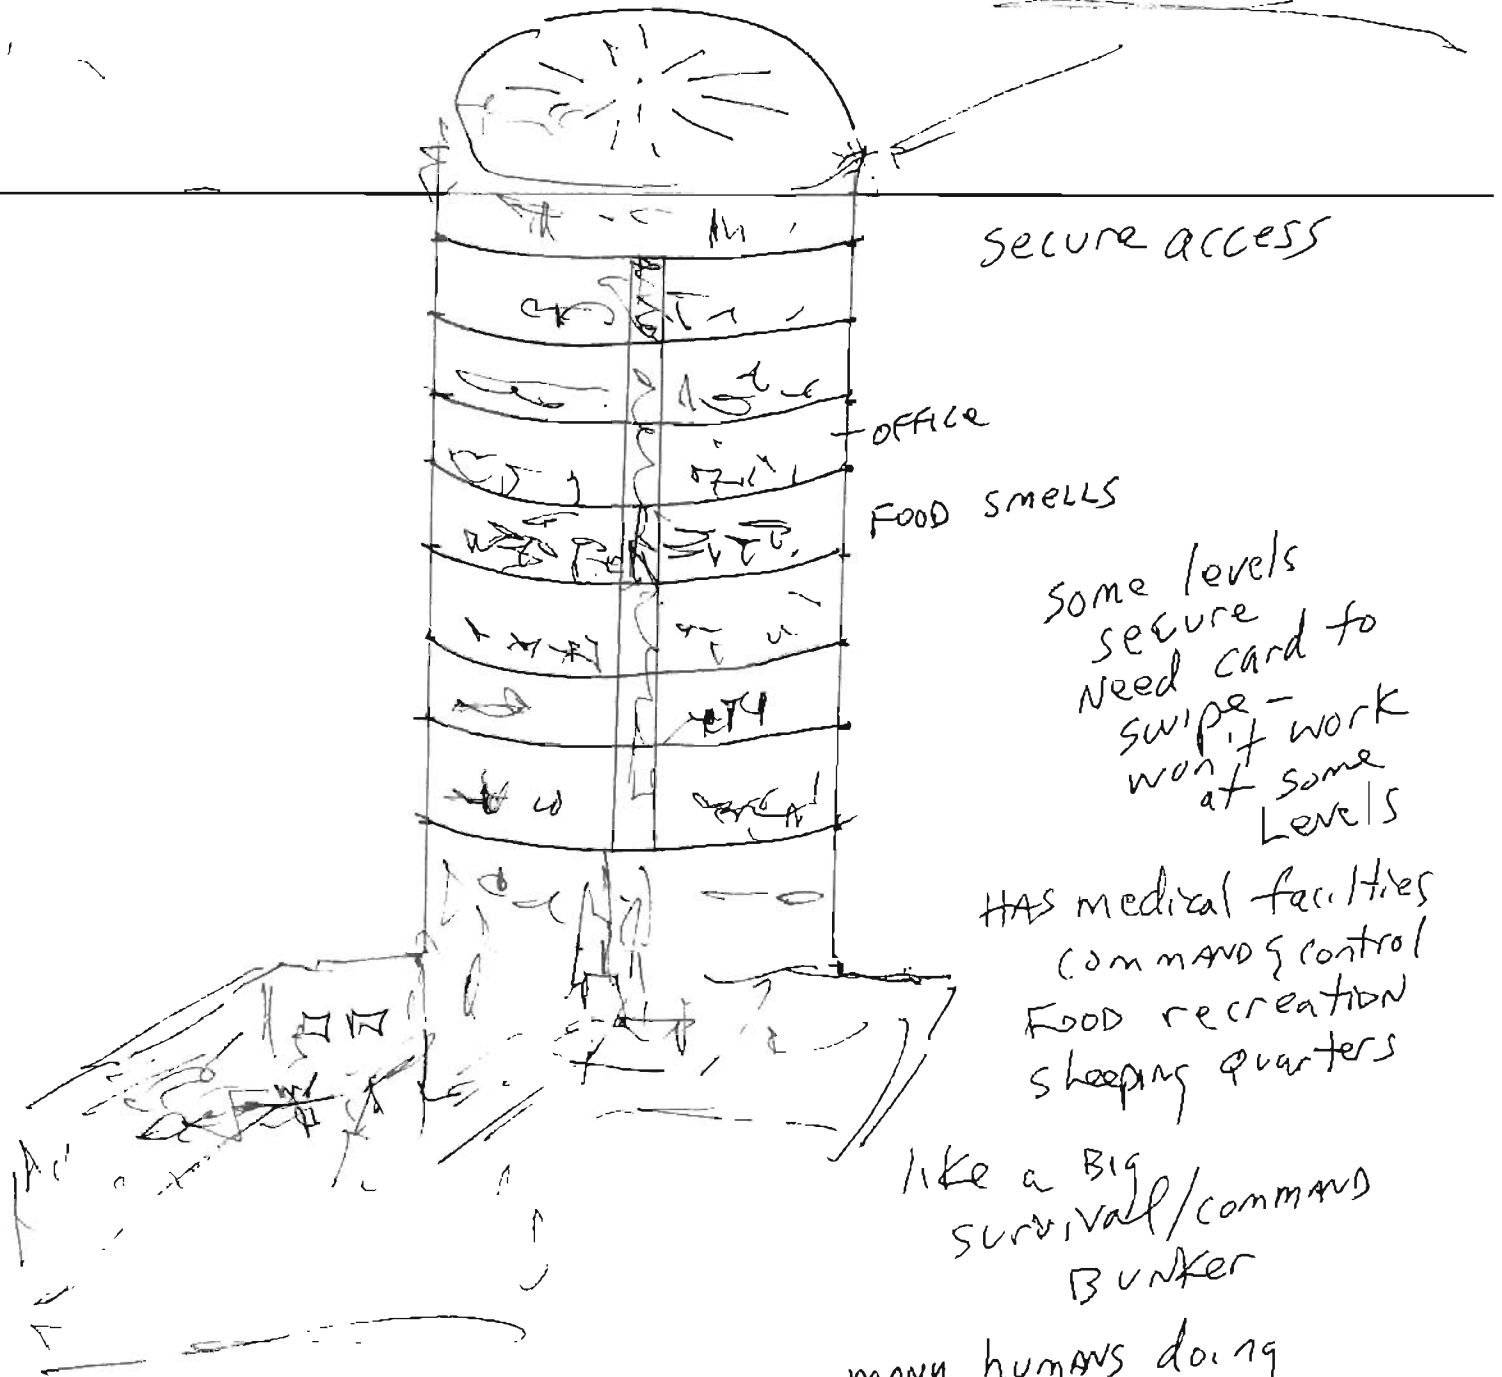 secure access
OFFICE
FOOD SMELLS
Some levels
secure
Need card to
swipe -
won't work
at some
Levels
HAS medical facilties
COMMAND & control
FOOD recreation
sleeping quarters
like a BIG
survival/COMMAND
BUNKER
many humans doing